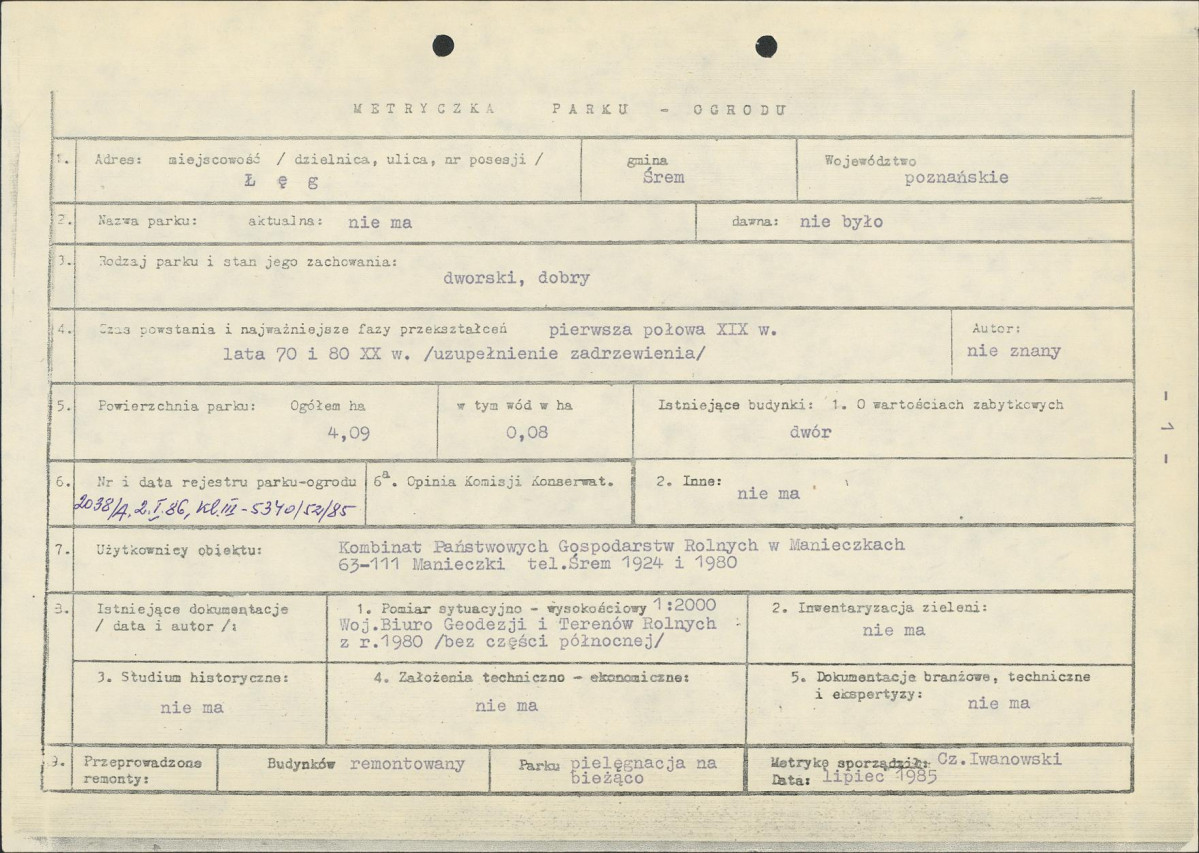 METRYCZKA PARKU - OGRODU
1. Adres: miejscowość / dzielnica, ulica, nr posesji /
Ł ę g
gmina
Śrem
Województwo
poznańskie
2. Nazwa parku: aktualna: nie ma
dawna: nie było
3. Rodzaj parku i stan jego zachowania:
dworski, dobry
4. Czas powstania i najważniejsze fazy przekształceń pierwsza połowa XIX w.
lata 70 i 80 XX w. /uzupełnienie zadrzewienia/
Autor:
nie znany
5. Powierzchnia parku: Ogółem ha
4,09
w tym wód w ha
0,08
Istniejące budynki: 1. O wartościach zabytkowych
dwór
6. Nr i data rejestru parku-ogrodu
2038/A, 2.I.86, Kl.III-5340/52/85
6a. Opinia Komisji Konserwat.
2. Inne:
nie ma
7. Użytkownicy obiektu: Kombinat Państwowych Gospodarstw Rolnych w Manieczkach
63-111 Manieczki tel.Śrem 1924 i 1980
8. Istniejące dokumentacje
/ data i autor /:
1. Pomiar sytuacyjno - wysokościowy 1:2000
Woj.Biuro Geodezji i Terenów Rolnych
z r.1980 /bez części północnej/
2. Inwentaryzacja zieleni:
nie ma
3. Studium historyczne:
nie ma
4. Założenia techniczno - ekonomiczne:
nie ma
5. Dokumentacje branżowe, techniczne
i ekspertyzy: nie ma
9. Przeprowadzone
remonty:
Budynków remontowany
Parku pielęgnacja na
bieżąco
Metrykę sporządził: Cz.Iwanowski
Data: lipiec 1985
- 1 -